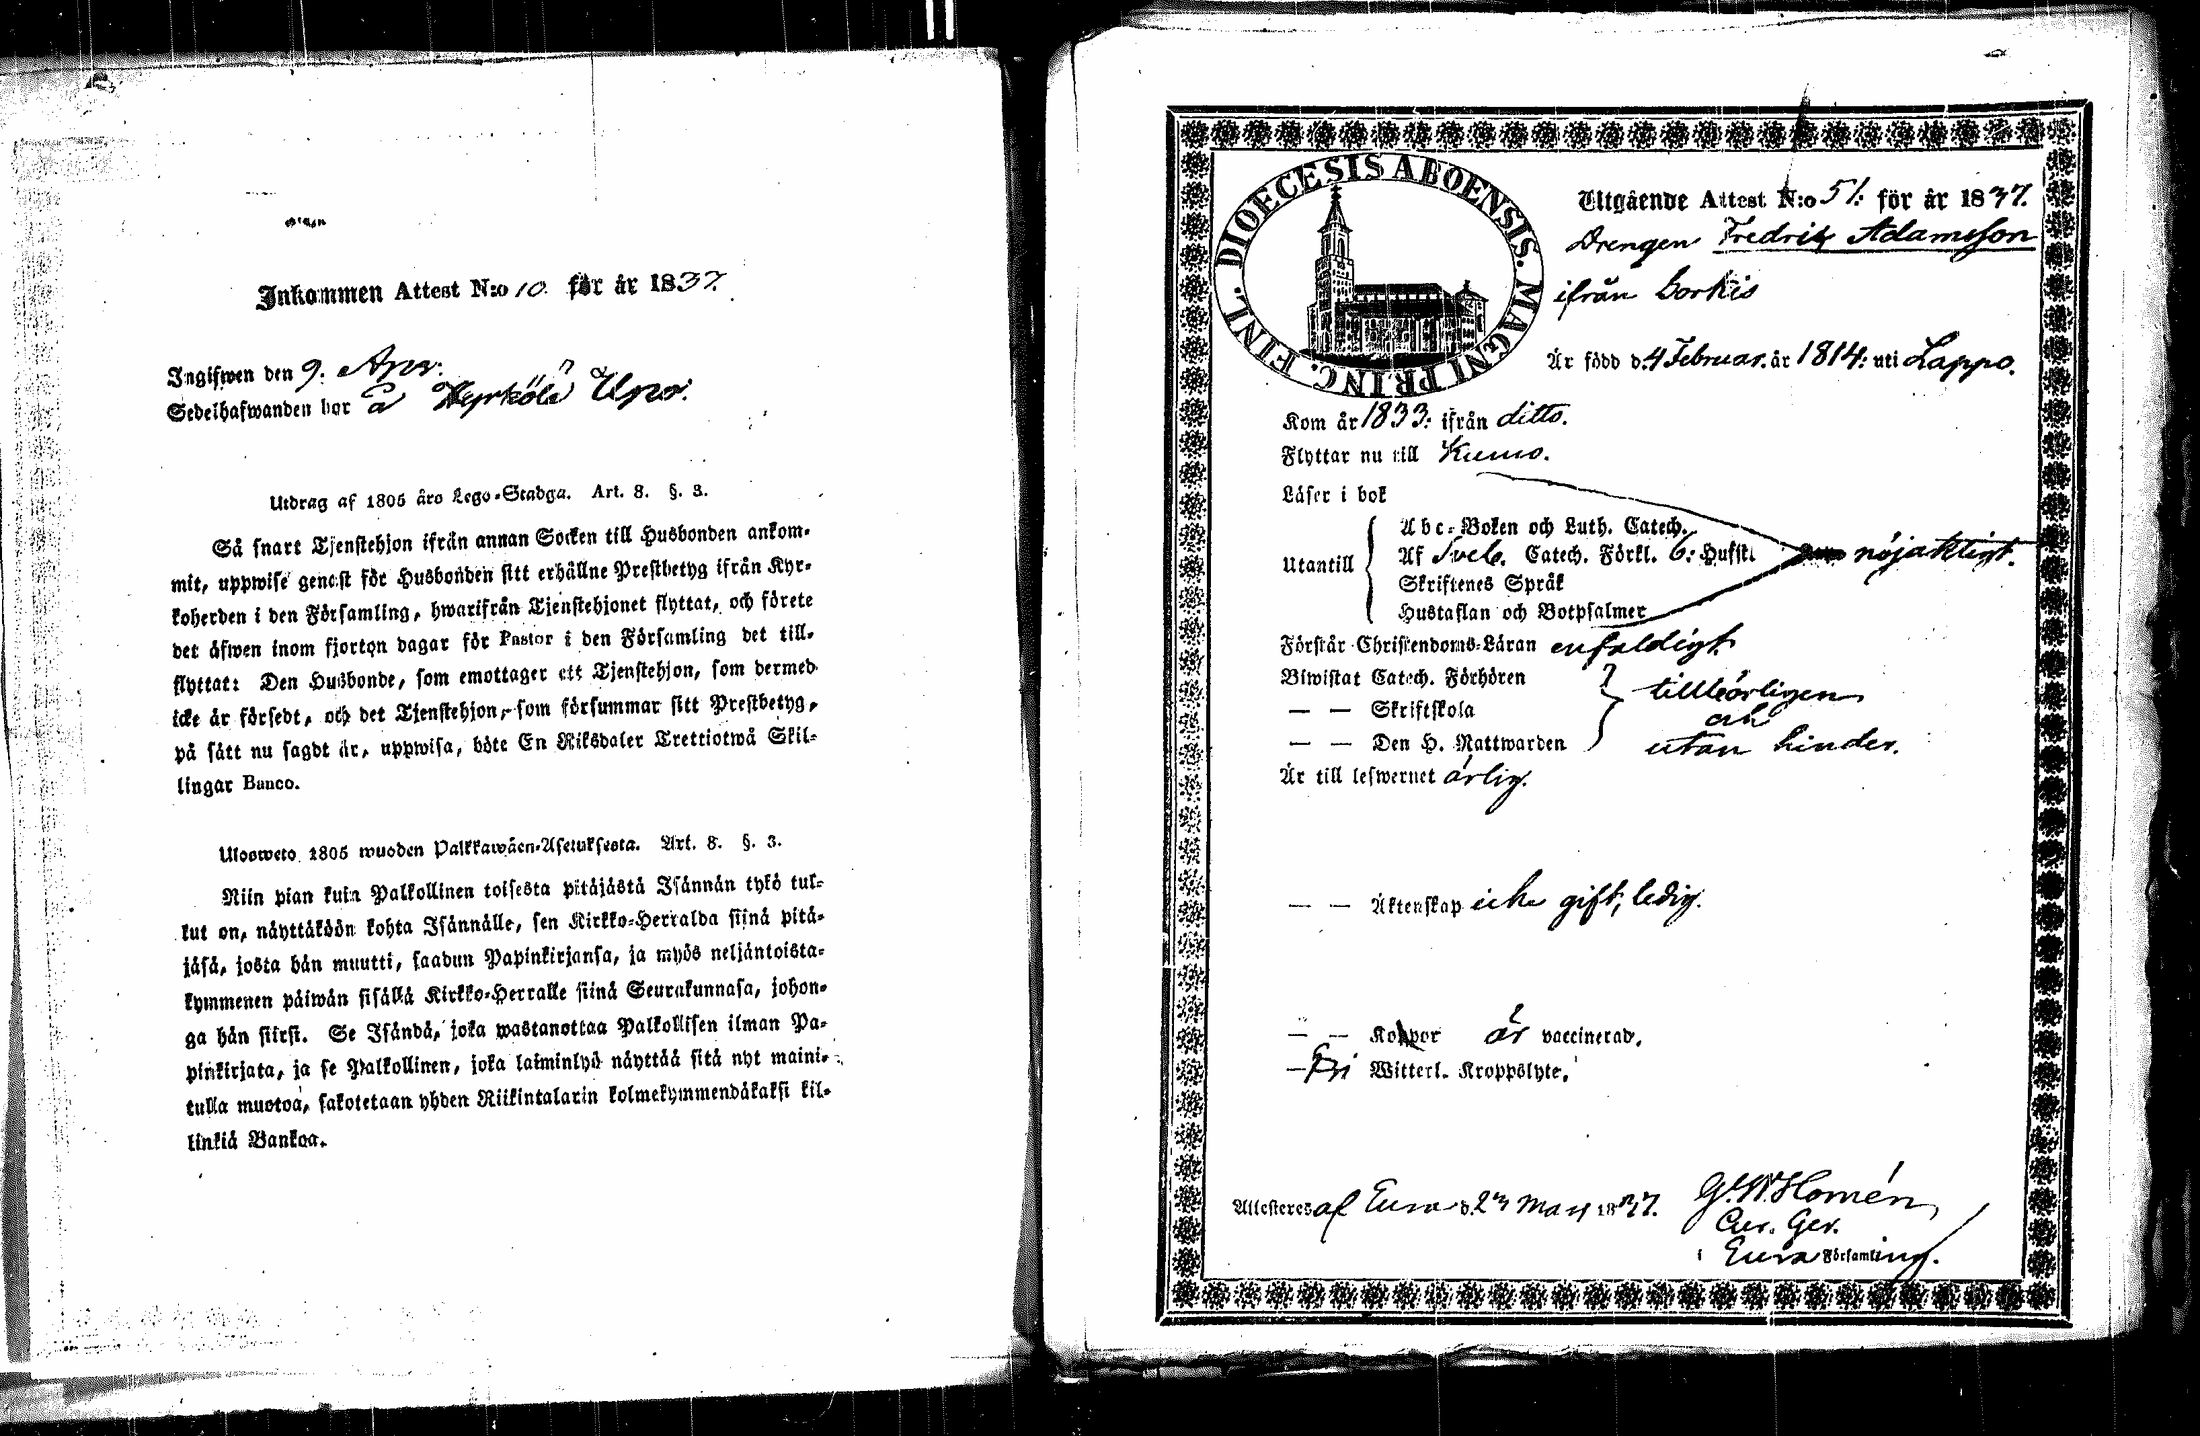 Inkommen Attest N:o 10. för år 1837.
Ingifwen den 9. Apr.
Sedelhafwanden bor å
Utdrag af 1805 åro Lego-Stadga. Art. 8. §. 3.
Så snart Tjenstehjon ifrån annan Socken till Husbonden ankom-
mit, uppwise genast för Husbonden sitt erhållne Prestbetyg ifrån Kyr-
koherden i den Församling, hwarifrån Tjenstehjonet flyttat, och förete
det äfwen inom fjorton dagar för Pastor i den Församling det till-
flyttat: Den Husbonde, som emottager ett Tjenstehjon, som dermed
icke är försedt, och det Tjenstehjon, som försummar sitt Prestbetyg,
på sätt nu sagdt är, uppwisa, böte En Riksdaler Trettiotwå Skil-
lingar Banco.
Ulosweto 1805 wuoden Palkkawäen-Asetuksesta. Art. 8. §. 3.
Niin pian kuin Palkollinen toisesta pitäjästä Isännän tykö tul-
lut on, näyttäköön kohta Isännälle, sen Kirkko-Herralda siinä pitä-
jäsä, josta hän muutti, saadun Papinkirjansa, ja myös neljäntoista-
kymmenen päiwän sisällä Kirkko-Herralle siinä Seurakunnasa, johon-
ga hän siirsi. Se Isändä, joka wastanottaa Palkollisen ilman Pa-
pinkirjata, ja se Palkollinen, joka laiminlyö näyttää sitä nyt maini-
tulla muotoa, sakotetaan yhden Riikintalarin kolmekymmendäkaksi kil-
linkiä Bankoa.
DIOECESIS ABOENSIS. MAGNI PRINC. FINL.
Utgående Attest N:o 51: för år 1837.
Drengen Fredrik Adamsson
ifrån Sorkis
Är född d. 4 Februar. år 1814: uti Lappo.
Kom år 1833: ifrån ditto.
Flyttar nu till Kumo.
Läser i bok
Utantill
Abc-Boken och Luth. Catech.
Af Sveb. Catech. Förkl. 6: Hufst. nöjaktligt.
Skriftenes Språk
Hustaflan och Botpsalmer
Förstår Christendoms-Läran enfaldigt
Biwistat Catech. Förhören
— — Skriftskola tillbörligen
och
— — Den H. Nattwarden utan hinder.
Är till lefwernet ärlig.
— — Äktenskap icke gift, ledig.
— — Koppor är vaccinerad.
— Fri Witterl. Kroppslyte.
Attesteres af Eura d. 23 Mars 1837.
G. W. Homén
Cur. Ger.
i Eura Församling.